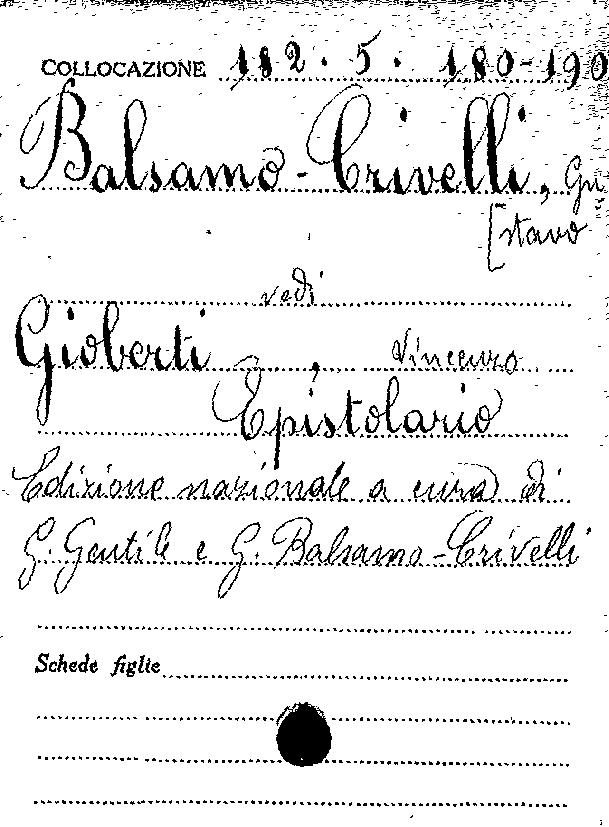 COLLOCAZIONE 182.5.180-190
Balsamo-Crivelli, Gu
[stavo
vedi
Gioberti, Vincenzo
Epistolario
Edizione nazionale a cura di
G. Gentile e G. Balsamo-Crivelli
Schede figlie